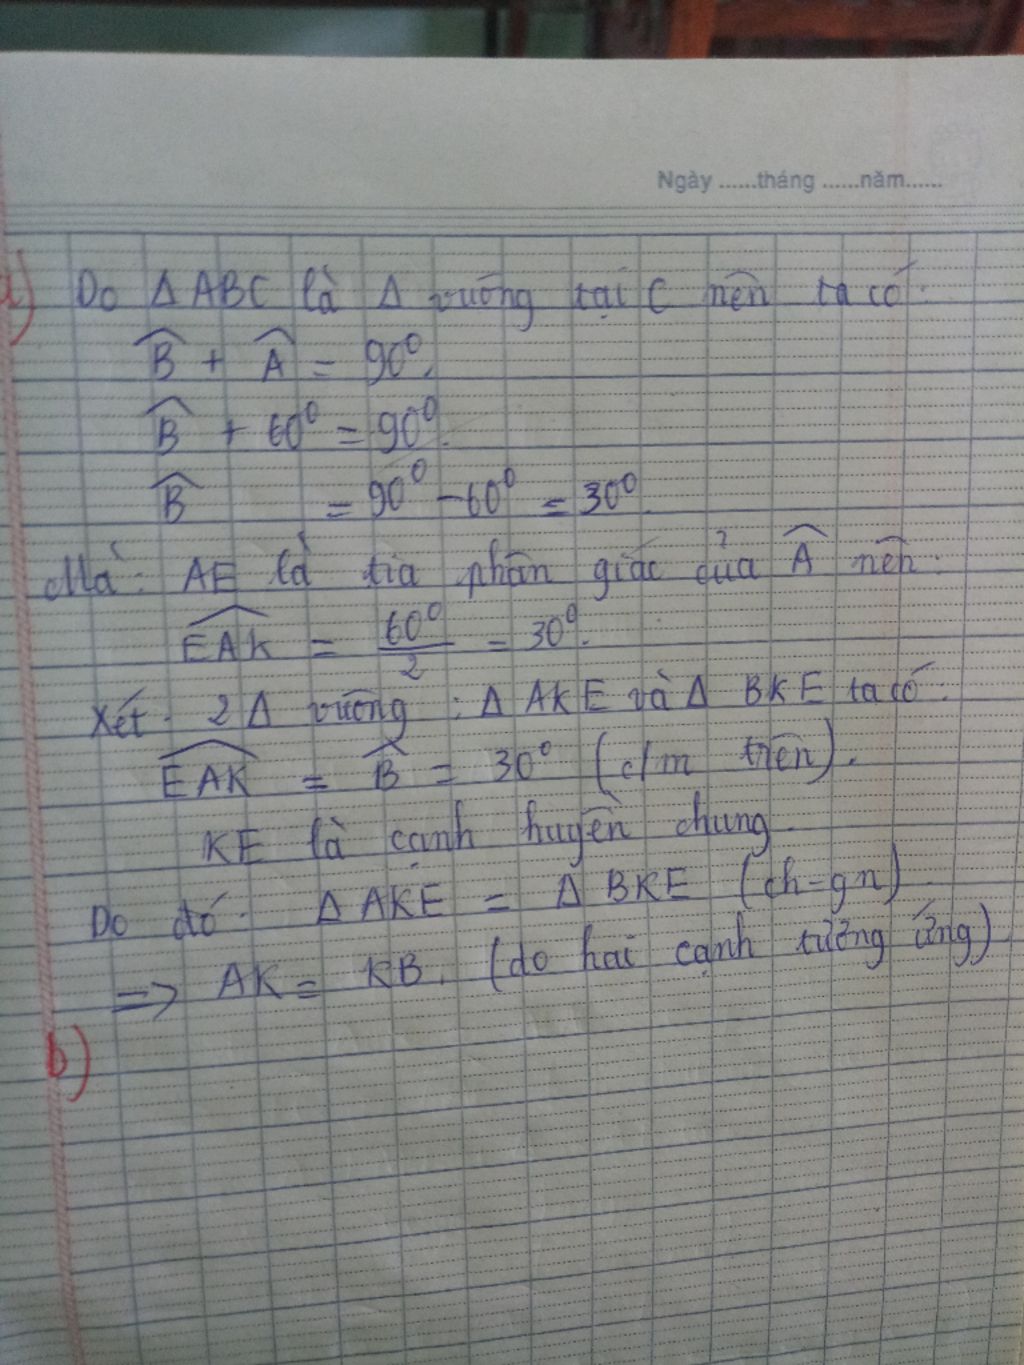 Ngày ......tháng ......năm......
a) Do Δ ABC là Δ vuông tại C nên ta có:
B̂ + Â = 90⁰.
B̂ + 60⁰ = 90⁰.
B̂ = 90⁰ - 60⁰ = 30⁰.
Mà: AE là tia phân giác của Â nên:
\widehat{EAK} = \frac{60⁰}{2} = 30⁰.
Xét: 2 Δ vuông : Δ AKE và Δ BKE ta có:
\widehat{EAK} = B̂ = 30⁰ (c/m trên).
KE là cạnh huyền chung.
Do đó: Δ AKE = Δ BKE (ch-gn)
=> AK = KB. (do hai cạnh tương ứng)
b)